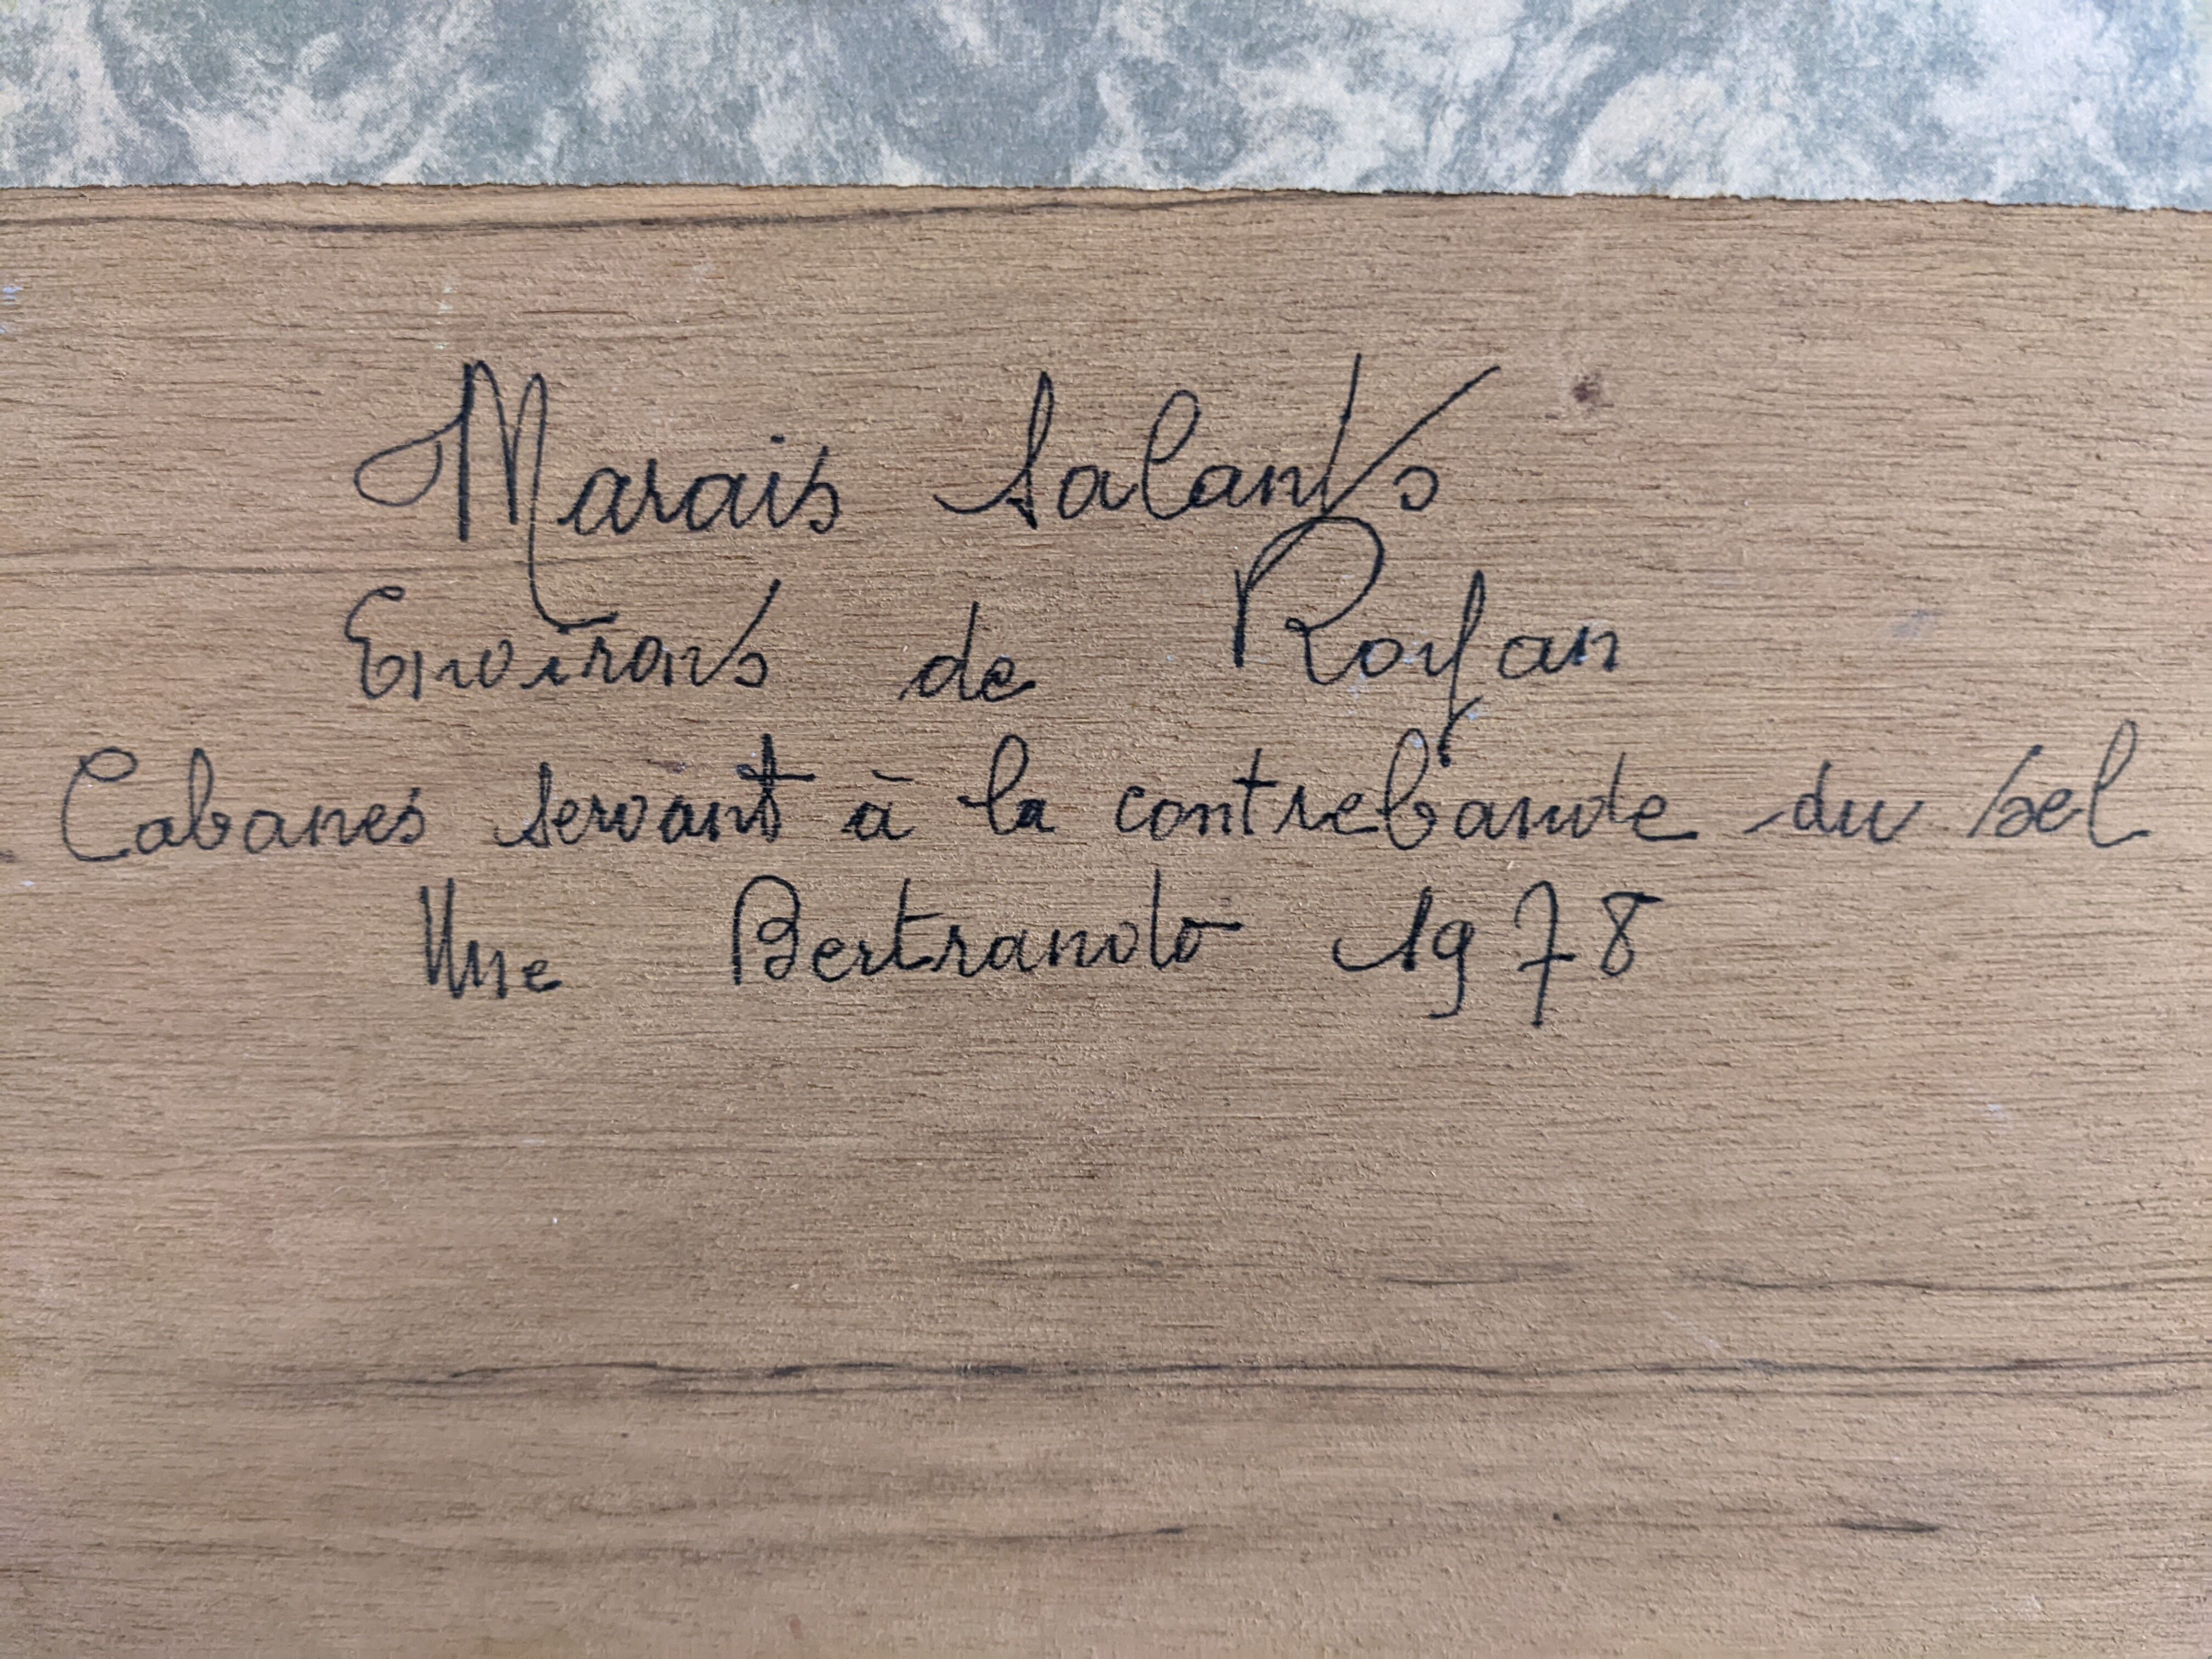 Marais Salants
Environs de Royan
Cabanes servant à la contrebande du sel
Mme Bertrand 1978